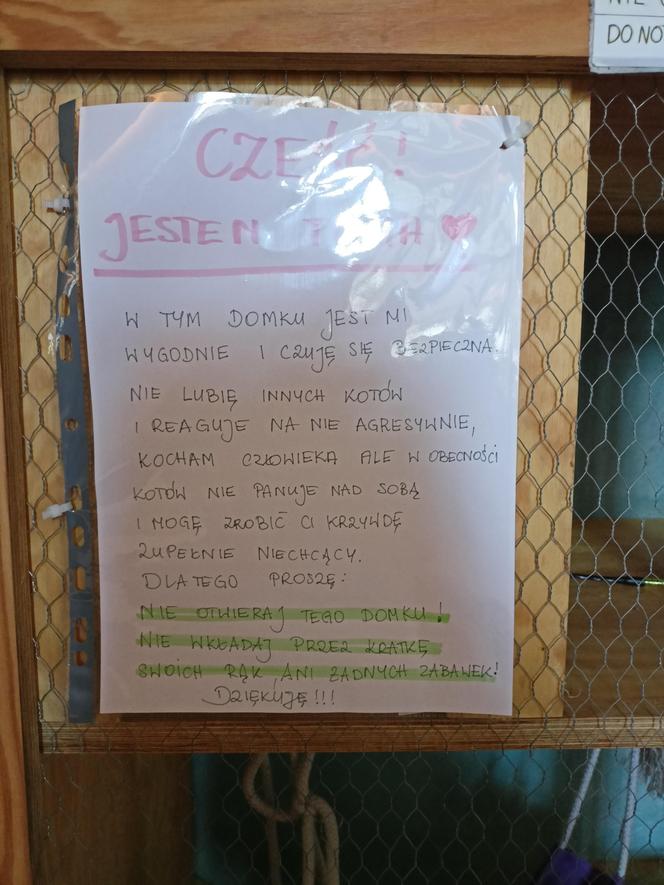 DO NOT
CZEŚĆ!
JESTEM
W TYM DOMKU JEST MI
WYGODNIE I CZUJĘ SIĘ BEZPIECZNA.
NIE LUBIĘ INNYCH KOTÓW
I REAGUJE NA NIE AGRESYWNIE,
KOCHAM CZŁOWIEKA ALE W OBECNOŚCI
KOTÓW NIE PANUJE NAD SOBĄ
I MOGĘ ZROBIĆ CI KRZYWDĘ
ZUPEŁNIE NIECHCĄCY.
DLATEGO PROSZĘ:
NIE OTWIERAJ TEGO DOMKU!
NIE WKŁADAJ PRZEZ KRATKĘ
SWOICH RĄK ANI ŻADNYCH ZABAWEK!
DZIĘKUJĘ!!!